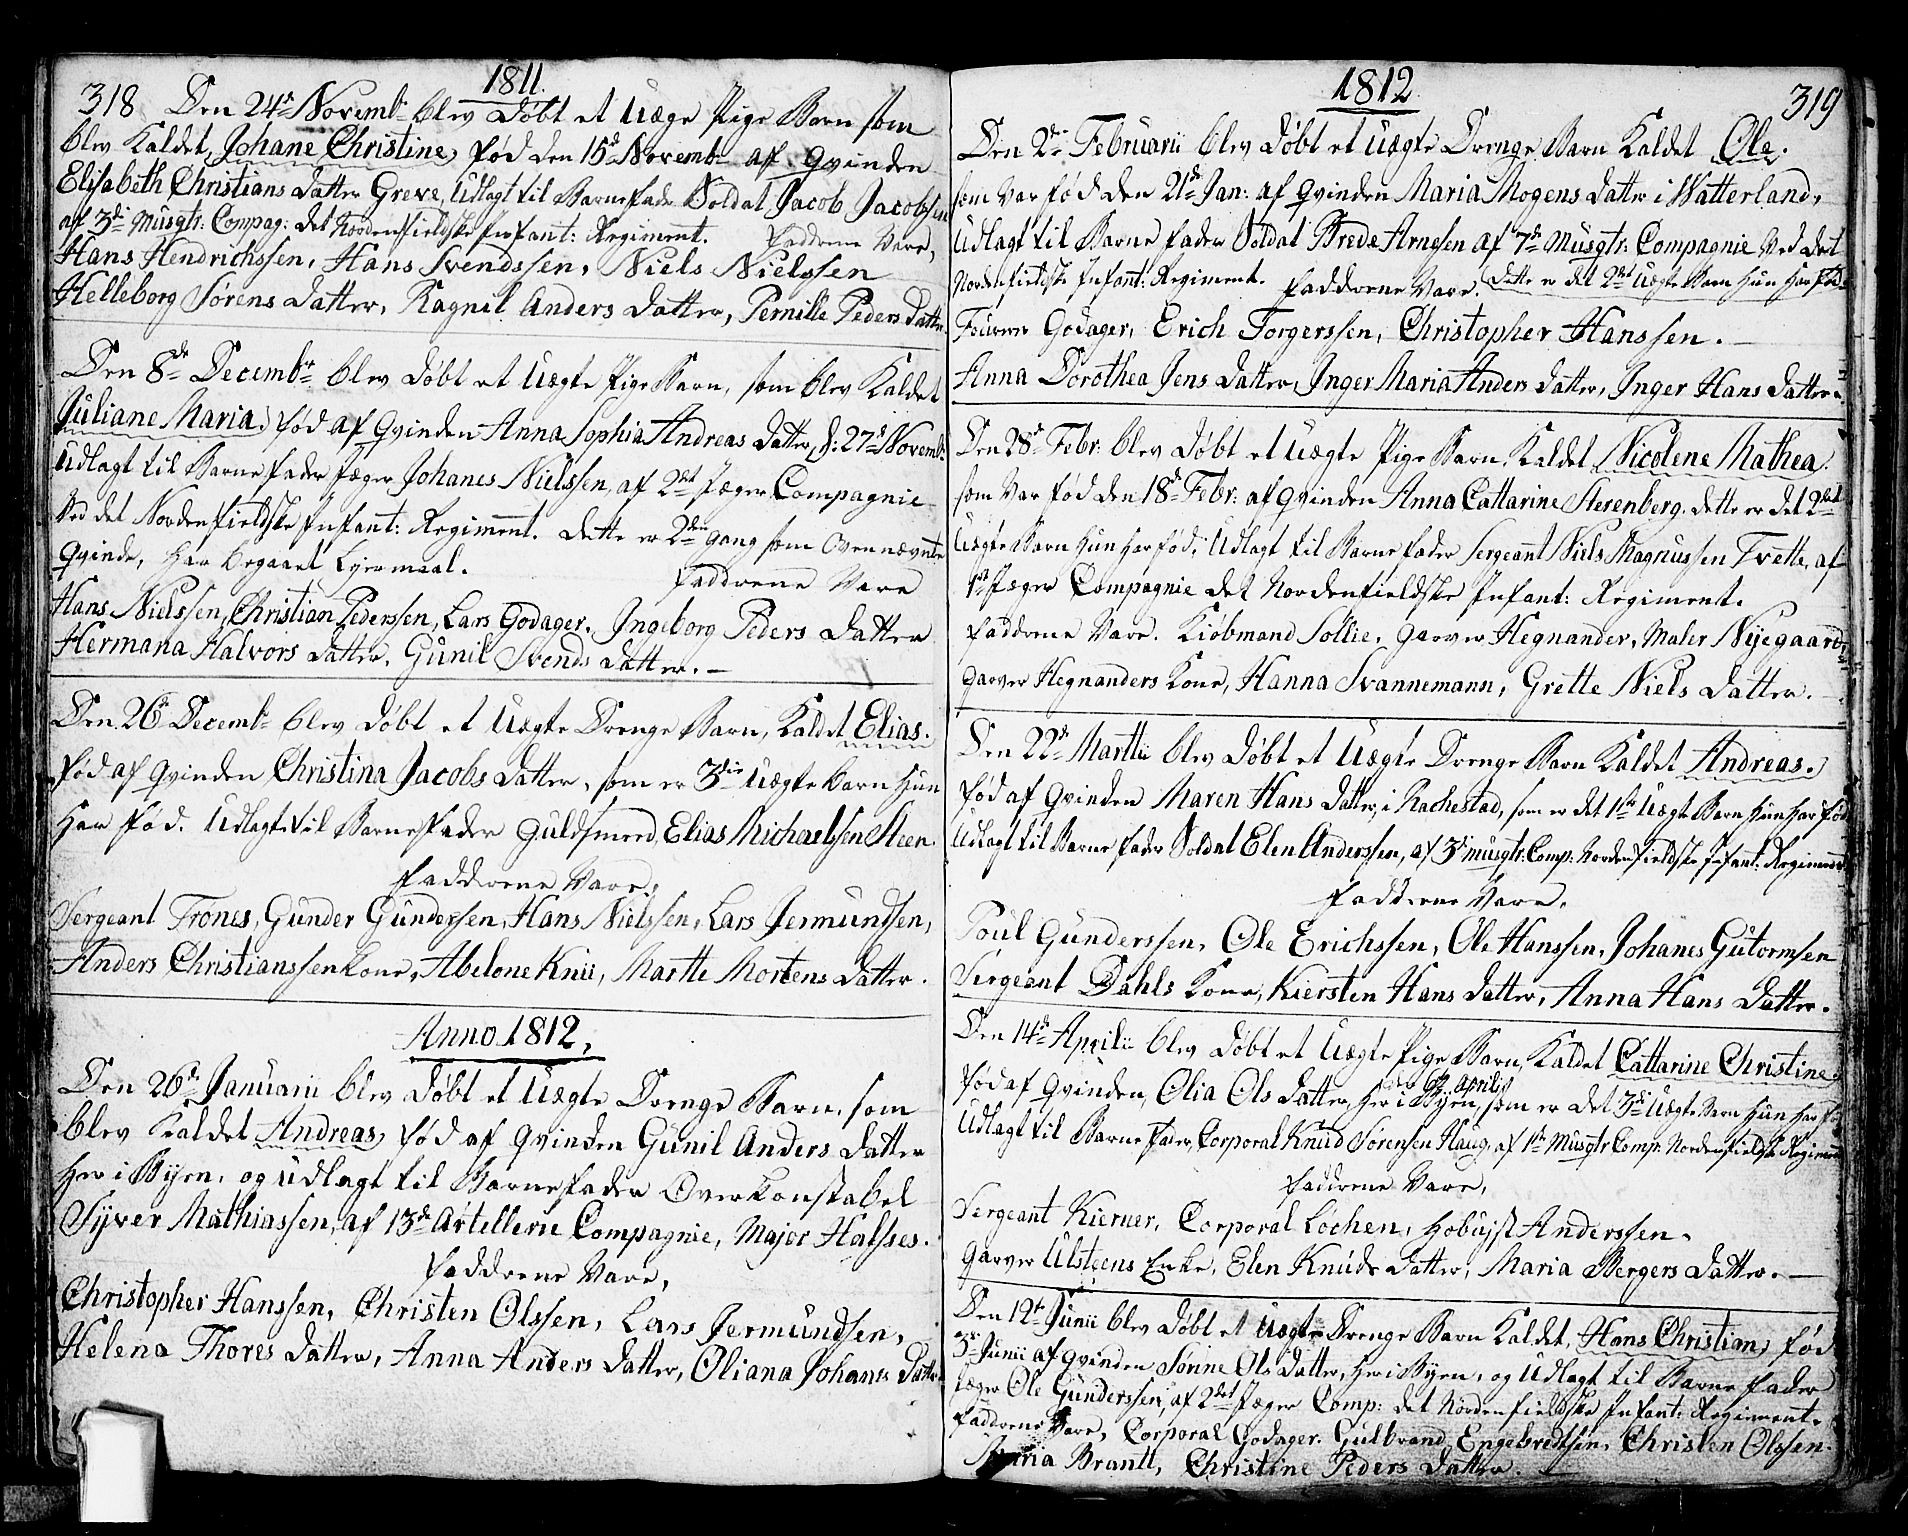 1811.
318 Den 24de Novembr blev døbt et Uægte Pige Barn som
blev Kaldet Johane Christine, fød den 15de Novembr af Qvinden
Elisabeth Christians datter Greve, Udlagt til Barnefader Soldat Jacob Jacobsen
af 3die Musqtr: Compag: det Nordenfieldske Infant: Regiment. Fadderne Vare,
Hans Hendrichssen, Hans Svendssen, Niels Nielssen
Helleborg Sørens datter, Ragnil Anders datter, Pernille Peders datter.
Den 8de Decembr blev døbt et Uægte Pige Barn, som blev Kaldet
Juliane Maria, fød af Qvinden Anna Sophia Andreas datter, d: 27de Novembr
Udlagt til Barnefader Jæger Johanes Nielssen, af 2det Jæger Compagnie
Ved det Nordenfieldske Infant: Regiment. Dette er 2den gang som Ovennævnte
Qvinde, har begaaet Leiermaal. Fadderne Vare
Hans Nielssen, Christian Pederssen, Lars Godager. Ingeborg Peders datter
Hermana Halvors datter, Gunil Svends datter. —
Den 26de Decembr blev døbt et Uægte Drenge Barn, Kaldet Elias.
fød af Qvinden Christina Jacobs datter, som er 3die Uægte barn hun
har fød. Udlagt til Barnefader Guldsmed Elias Michaelsen Steen.
Fadderne Vare,
Sergeant Trones, Gunder Gundersen, Hans Nielssen, Lars Jermundsen,
Anders Christianssen kone, Abelone Knii, Marthe Mortens datter.
Anno 1812,
Den 26de Januarii blev døbt et Uægte Drenge Barn, som
blev Kaldet Andreas, fød af Qvinden Gunil Anders datter
her i Byen, og udlagt til Barnefader Overkonstabel
Syver Mathiassen, af 13de Artellerie Compagnie, Major Halses.
Fadderne Vare,
Christopher Hanssen, Christen Olssen, Lars Jermundsen,
Helena Thores datter, Anna Anders datter, Oliana Johans datter
1812.
319
Den 2de Februarii blev døbt et Uægte Drenge Barn Kaldet Ole.
som var fød den 21de Jan: af Qvinden Maria Mogens datter i Watterland,
Udlagt til Barne fader Soldat Brede Arnesen af 7de Musqtr: Compagnie Ved det
Nordenfieldske Infant: Regiment. Fadderne Vare. Dette er det 2det Uægte Barn hun har fød.
Fourer Godager, Erich Torgerssen, Christopher Hanssen. —
Anna Dorothea Jens datter, Inger Maria Anders datter, Inger Hans datter.
Den 28de Febr: blev døbt et Uægte Pige Barn Kaldet Nicolene Mathea.
som var fød den 18de Febr: af Qvinden Anna Cattarine Sterenberg. dette er det 2det
Uægte Barn hun har fød, Udlagt til Barne fader Sergeant Niels Magnussen Tvette, af
1ste Jæger Compagnie det Nordenfieldske Infant: Regiment.
Fadderne Vare. Kiøbmand Sollie, Garver Hegnander, Maler Nyegaard,
Garver Hegnanders Kone, Hanna Svannemann, Grette Niels datter. —
Den 22de Martii blev døbt et Uægte Drenge Barn Kaldet Andreas.
fød af Qvinden Maren Hans datter, i Rachestad, som er det 1ste Uægte Barn hun har fød
Udlagt til Barne fader Soldat Elen Anderssen, af 3die musqtr: Comp: Nordenfieldske Infant: Regiment
Fadderne Vare,
Poul Gunderssen, Ole Erichssen, Ole Hanssen, Johanes Gutormsen
Sergeant Dahls Kone, Kiersten Hans datter, Anna Hans datter.
Den 14de Aprilii blev døbt et Uægte Pige Barn, Kaldet Cattarine Christine
fød af Qvinden, Olia Ols datter, her i Byen, den 6te Aprilis, som er det 3die Uægte Barn hun har fød
Udlagt til Barne fader, Corporal Knud Sørensen Haug, af 1ste Musqtr Comp: Nordenfieldske Regiment
Fadderne Vare,
Sergeant Kierner, Corporal Lochen, Anderssen.
Garver Ulsteens Enke, Elen Knuds datter, Maria Bergers datter. —
Den 12te Junii blev døbt et Uægte Drenge Barn Kaldet, Hans Christian, fød
3de Junii af Qvinden Sønne Ols datter, her i Byen, og Udlagt til Barne fader
Jæger Ole Gunderssen, af 2det Jæger Comp: det Nordenfieldske Infant: Regiment.
Fadderne Vare, Corporal Godager. Gulbrand Engebretsen, Christen Olssen.
Maria Brantt, Christine Peders datter. —